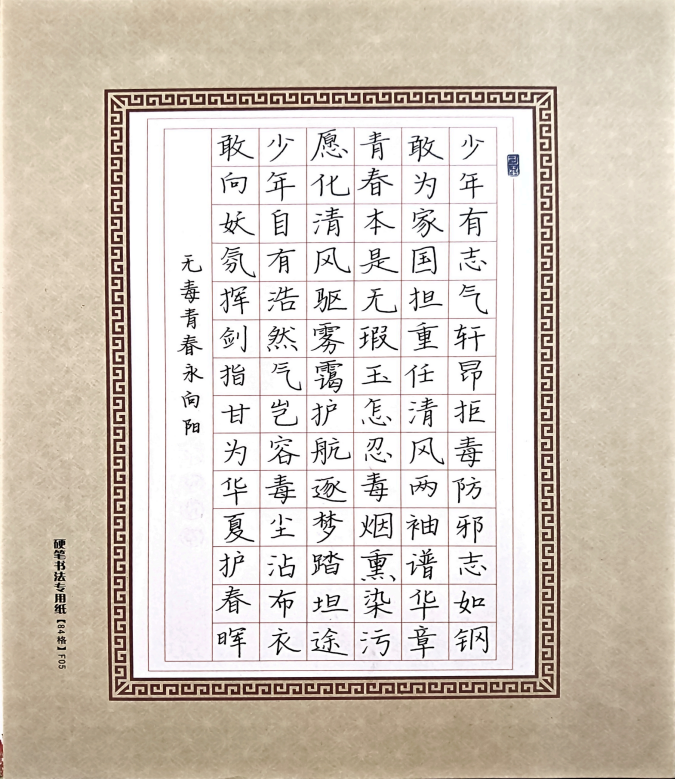 少年有志气轩昂拒毒防邪志如钢
敢为家国担重任清风两袖谱华章
青春本是无瑕玉怎忍毒烟熏染污
愿化清风驱雾霭护航逐梦踏坦途
少年自有浩然气岂容毒尘沾布衣
敢向妖氛挥剑指甘为华夏护春晖
无毒青春永向阳
硬笔书法专用纸【84格】F05